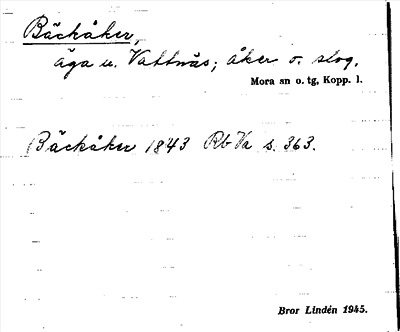 Bäckåker,
äga u. Vattnäs; åker o. slog.
Mora sn o. tg, Kopp. l.
(Bäckåker 1843 Rb Va s. 363.
Bror Lindén 1945.